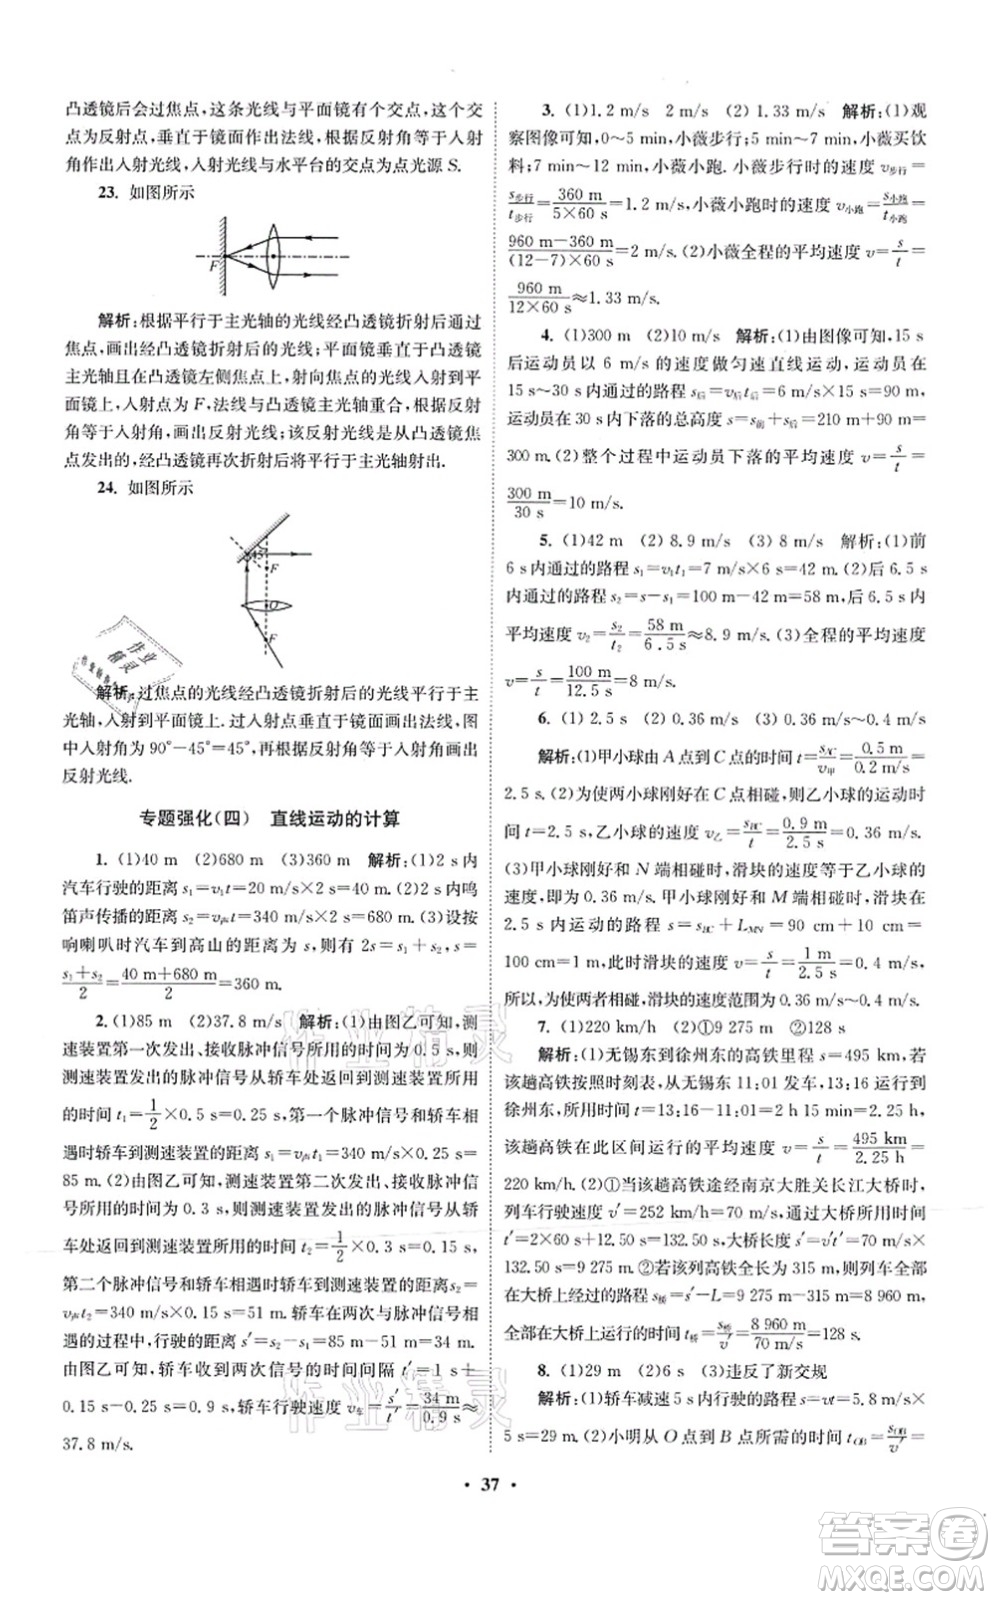 凸透镜后会过焦点,这条光线与平面镜有个交点,这个交
点为反射点,垂直于镜面作出法线,根据反射角等于入射
角作出入射光线,入射光线与水平台的交点为点光源 S.
23. 如图所示
F
解析:根据平行于主光轴的光线经凸透镜折射后通过
焦点,画出经凸透镜折射后的光线;因为平面镜垂直于
主光轴且在凸透镜左侧焦点上,射向焦点的光线入射到平
面镜上,入射点为 F,法线与凸透镜主光轴重合,根据反射
角等于入射角,画出反射光线;该反射光线是从凸透镜焦
点发出的,经凸透镜再次折射后将平行于主光轴射出.
24. 如图所示
45°
F
O
F
解析:过焦点的光线经凸透镜折射后的光线平行于主
光轴,入射到平面镜上.过入射点垂直镜面作出法线,图
中入射角为 90°－45°＝45°,再根据反射角等于入射角画出
反射光线.
专题强化(四)　直线运动的计算
1. (1)40 m　(2)680 m　(3)360 m　解析:(1)2 s内
汽车行驶的距离 s₁＝vt＝20 m/s×2 s＝40 m. (2)2 s内鸣
笛声传播的距离 s₂＝v声t＝340 m/s×2 s＝680 m. (3)设按
响喇叭时汽车到高山的距离为 s,则有 2s＝s₁＋s₂,s＝
(s₁＋s₂)/2＝(40 m＋680 m)/2＝360 m.
2. (1)85 m　(2)37.8 m/s　解析:(1)由图乙可知,测
速装置第一次发出、接收脉冲信号所用的时间为 0.5 s,则
测速装置发出的脉冲信号从轿车处返回到测速装置所用
的时间 t₁＝1/2×0.5 s＝0.25 s,第一个脉冲信号和轿车相
遇时轿车到测速装置的距离 s₁＝v声t₁＝340 m/s×0.25 s＝
85 m. (2)由图乙可知,测速装置第二次发出、接收脉冲信
号所用的时间为 0.3 s,则测速装置发出的脉冲信号从轿
车处返回到测速装置所用的时间 t₂＝1/2×0.3 s＝0.15 s,
第二个脉冲信号和轿车相遇时轿车到测速装置的距离 s₂＝
v声t₂＝340 m/s×0.15 s＝51 m. 轿车在两次与脉冲信号相
遇的过程中,行驶的距离 s′＝s₁－s₂＝85 m－51 m＝34 m.
由图乙可知,轿车收到两次信号的时间间隔 t′＝1 s＋
0.15 s－0.25 s＝0.9 s,轿车行驶速度 v车＝s′/t′＝34 m/0.9 s≈
37.8 m/s.
3. (1)1.2 m/s　2 m/s　(2) 1.33 m/s　解析:(1)观
察图像可知,0～5 min,小薇步行;5 min～7 min,小薇买饮
料;7 min～12 min,小薇小跑. 小薇步行时的速度 v步行＝
s步行/t步行＝360 m/(5×60 s)＝1.2 m/s,小薇小跑时的速度 v小跑＝s小跑/t小跑＝
(960 m－360 m)/((12－7)×60 s)＝2 m/s. (2)小薇全程的平均速度 v＝s/t＝
960 m/(12×60 s)≈1.33 m/s.
4. (1)300 m　(2)10 m/s　解析:(1)由图像可知,15 s
后运动员以 6 m/s 的速度做匀速直线运动,运动员在
15 s～30 s 内通过的路程 s后＝v后t后＝6 m/s×15 s＝90 m,
运动员在30 s内下落的总高度 s＝s前＋s后＝210 m＋90 m＝
300 m. (2)整个过程中运动员下落的平均速度 v＝s/t＝
300 m/30 s＝10 m/s.
5. (1)42 m　(2) 8.9 m/s　(3) 8 m/s　解析:(1)前
6 s内通过的路程 s₁＝v₁t₁＝7 m/s×6 s＝42 m. (2)后 6.5 s
内通过的路程 s₂＝s－s₁＝100 m－42 m＝58 m,后 6.5 s内
平均速度 v₂＝s₂/t₂＝58 m/6.5 s≈8.9 m/s. (3)全程的平均速度
v＝s/t＝100 m/12.5 s＝8 m/s.
6. (1) 2.5 s　(2) 0.36 m/s　(3) 0.36 m/s～0.4 m/s
解析:(1)甲小球由 A 点到 C 点的时间 t＝sAC/v甲＝0.5 m/(0.2 m/s)＝
2.5 s. (2)为使两小球刚好在 C 点相碰,则乙小球的运动时
间为 2.5 s,乙小球的运动速度 v乙＝sBC/t＝0.9 m/2.5 s＝0.36 m/s.
(3)甲小球刚好和 N 端相碰时,滑块的速度等于乙小球的
速度,即为 0.36 m/s. 甲小球刚好和 M 端相碰时,滑块在
2.5 s 内运动的路程 s＝sBC＋LMN＝90 cm＋10 cm＝
100 cm＝1 m,此时滑块的速度 v＝s/t＝1 m/2.5 s＝0.4 m/s,
所以,为使两者相碰,滑块的速度范围为 0.36 m/s～0.4 m/s.
7. (1)220 km/h　(2)①9 275 m　②128 s
解析:(1)无锡东到徐州东的高铁里程 s＝495 km,若
该趟高铁按照时刻表行驶,从无锡东 11:01 发车,13:16 到达
徐州东,所用的时间 t＝13:16－11:01＝2 h 15 min＝2.25 h,
该趟高铁在此区间运行的平均速度 v＝s/t＝495 km/2.25 h＝
220 km/h. (2)①该趟高铁途经南京大胜关长江大桥时,
列车行驶速度 v′＝70 m/s,从车头上桥到车尾离开大桥所
用的时间 t′＝120 s＋12.50 s＝132.50 s,大桥长 s′＝v′t′＝70 m/s×
132.50 s＝9 275 m. ②若该列高铁全长为 315 m,列车全部
在大桥上的路程 s桥＝s′－L＝9 275 m－315 m＝8 960 m,
全部在大桥上运行的时间 t桥＝s桥/v′＝8 960 m/(70 m/s)＝128 s.
8. (1)29 m　(2)6 s　(3)违反了新交规
解析:(1)轿车减速 5 s内行驶的路程 s＝vt＝5.8 m/s×
5 s＝29 m. (2)小明从 O 点到 B 点所需的时间 tOB＝sOB/v′＝
• 37 •
作业精灵
作业精灵
作业精灵
答案圈
MXQE.COM